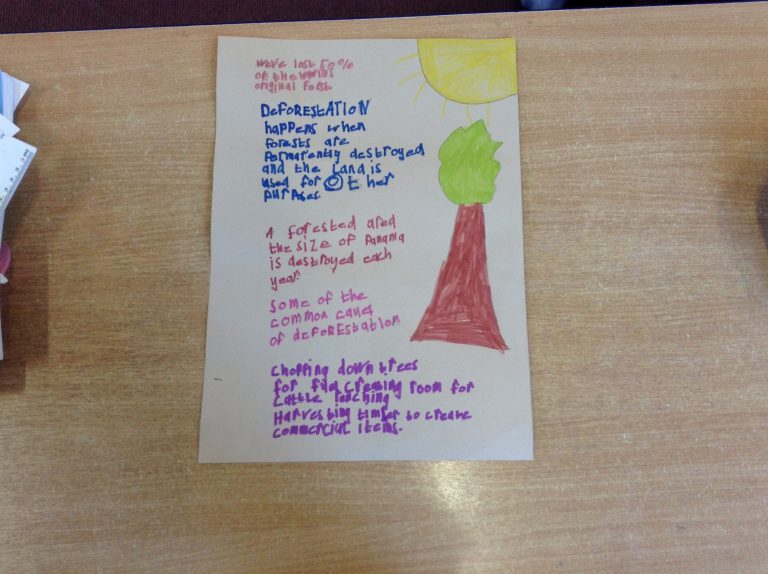 we've lost 50%
of the worlds
original forst
DEFORESTATION
happens when
forests are
Permarently destroyed
and the Land is
used for other
purposes.
A forested area
the size of Panama
is destroyed each
year.
Some of the
common caues
of deforestation
Chopping down trees
for creating room for
Cattle ranching
Harvesting timber to create
commercial items.